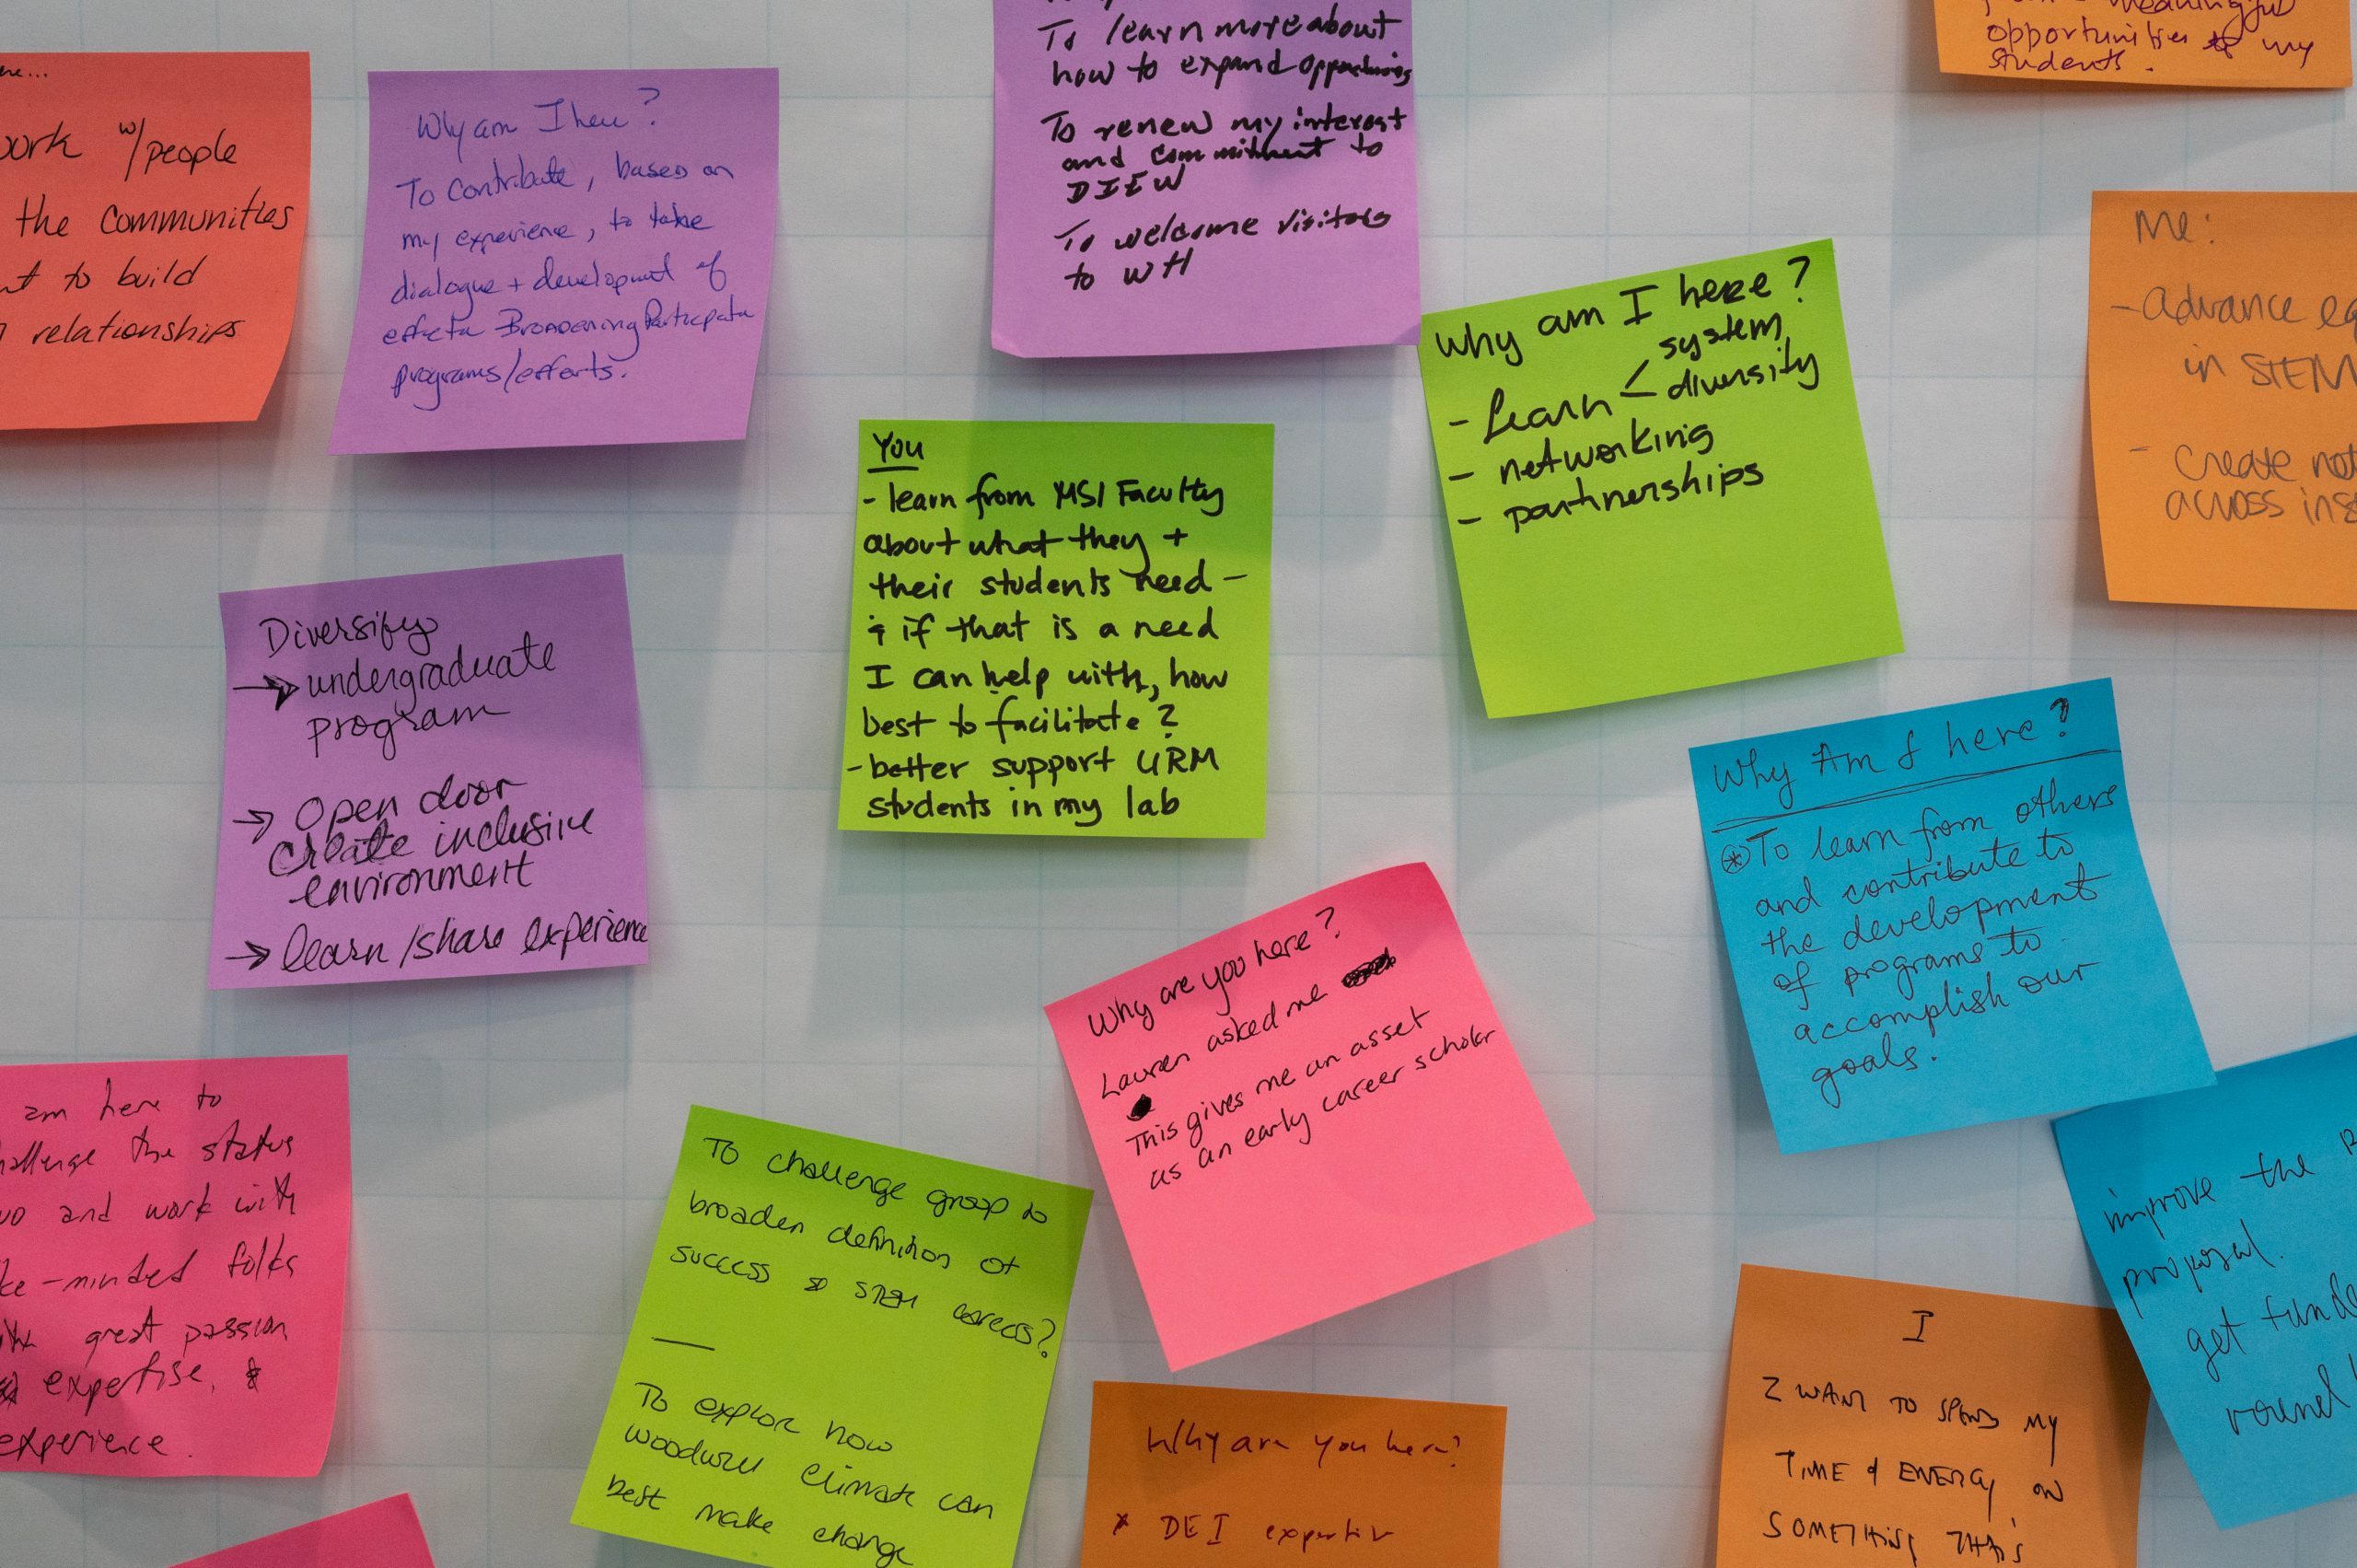 work w/people
the communities
to build
relationships
Why am I here?
To contribute, based on
my experience, to take
dialogue + development of
Broadening Participation
programs/efforts.
To learn more about
how to expand opportunities
To renew my interest
and commitment to
DIEW
To welcome visitors
to WH
meaningful
opportunities to my
students.
Why am I here?
- Learn < system
diversity
- networking
- partnerships
Me:
- Advance
in STEM
- Create
across
You
- learn from MSI Faculty
about what they +
their students need –
& if that is a need
I can help with, how
best to facilitate?
- better support URM
students in my lab
Diversify
→ undergraduate
program
→ Open door
Create inclusive
environment
→ learn/share experience
Why Am I here?
* To learn from others
and contribute to
the development
of programs to
accomplish our
goals.
Why are you here?
Lauren asked me
This gives me an asset
as an early career scholar
am here to
challenge the status
and work with
-minded folks
great passion
expertise, &
experience.
To challenge group to
broaden definition of
success & STEM careers?
—
To explore how
Woodwell Climate can
best make change
improve the
proposal.
get
round
Why are you here?
* DEI
I
I WANT TO SPEND MY
TIME & ENERGY ON
SOMETHING THAT'S